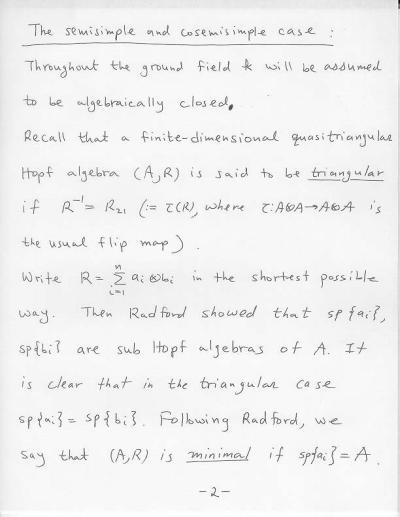 The semisimple and cosemisimple case :
Throughout the ground field k will be assumed
to be algebraically closed.
Recall that a finite-dimensional quasitriangular
Hopf algebra (A,R) is said to be triangular
if R⁻¹ = R₂₁ (:= τ(R), where τ: A⊗A → A⊗A is
the usual flip map).
Write R = ∑ᵢ₌₁ⁿ aᵢ ⊗ bᵢ in the shortest possible
way. Then Radford showed that sp{aᵢ},
sp{bᵢ} are sub Hopf algebras of A. It
is clear that in the triangular case
sp{aᵢ} = sp{bᵢ}. Following Radford, we
say that (A,R) is minimal if sp{aᵢ} = A.
-2-